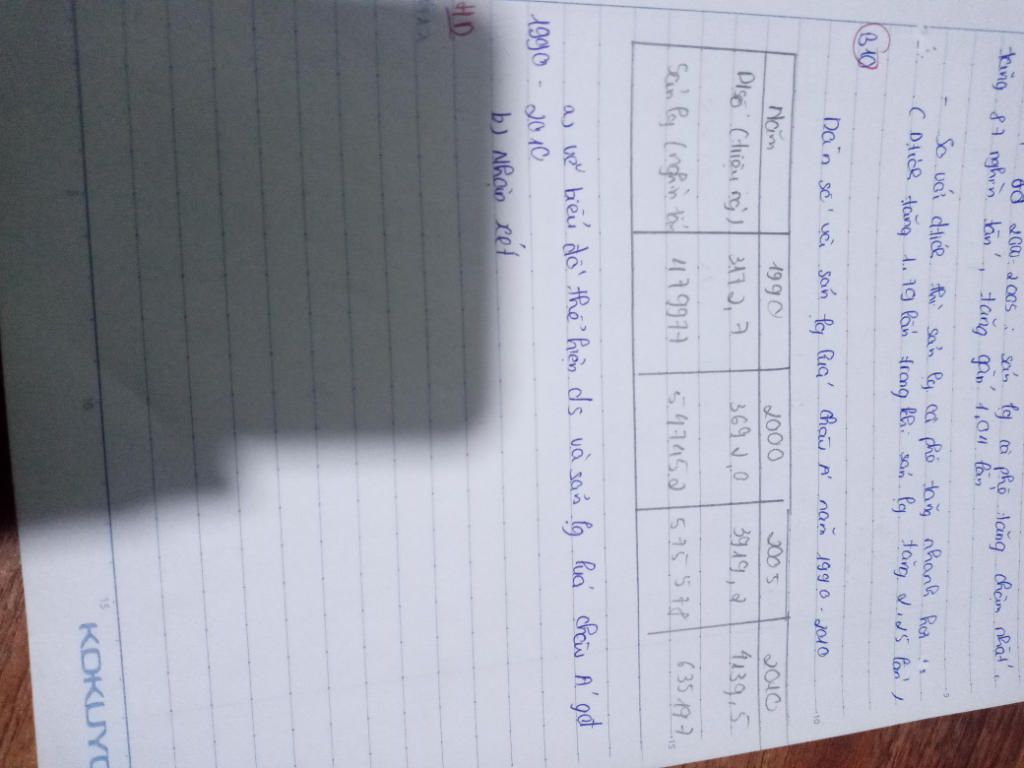 gđ 2000-2005: sản lg cà phê tăng chậm nhất:
tăng 87 nghìn tấn, tăng gần 1,01 lần
- So với dtích thì sản lg cà phê tăng nhanh hơn
( Dtích tăng 1.79 lần trong khi sản lg tăng 2,25 lần)
B10
Dân số và sản lg lúa châu Á năm 1990-2010
Năm 1990 2000 2005 2010
Dsố (triệu ng) 3172,7 3692,0 3919,2 4139,5
Sản lg (nghìn tấn 479977 547152 575578 635197
a) vẽ biểu đồ thể hiện ds và sản lg lúa châu Á gđ
1990 - 2010
b) Nhận xét
HD
KOKUYO